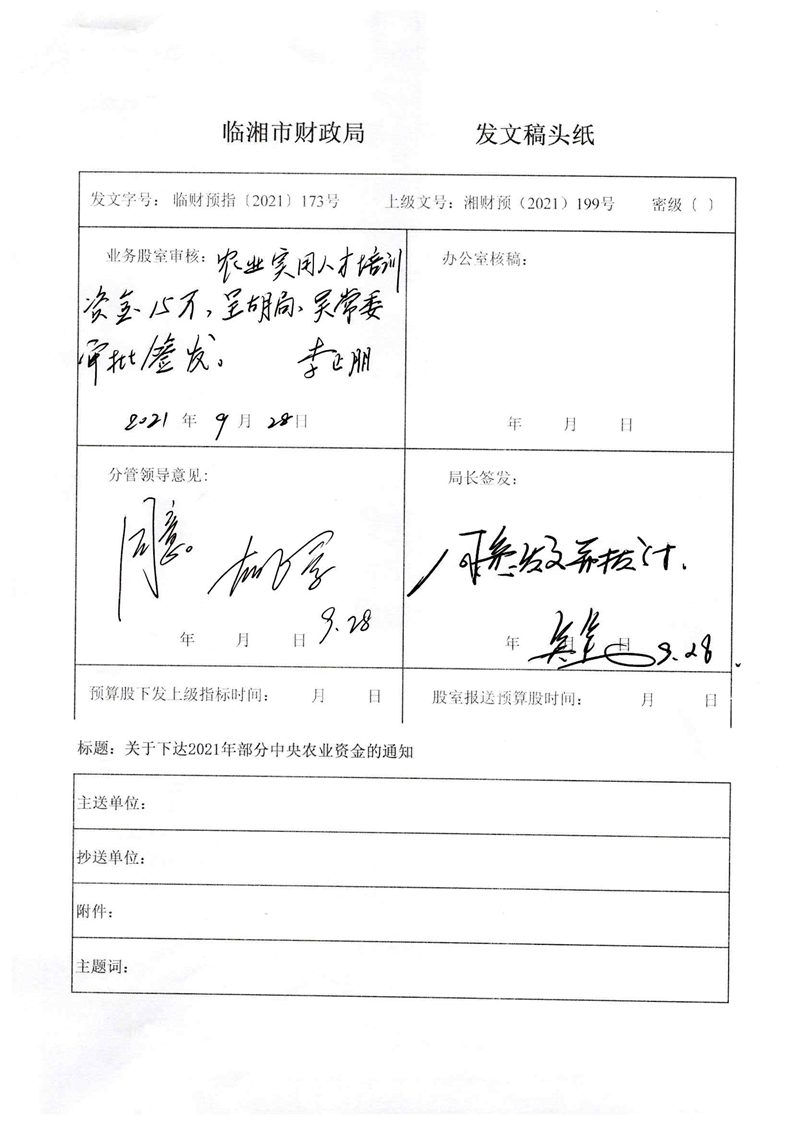 临湘市财政局 发文稿头纸
发文字号：临财预指〔2021〕173号 上级文号：湘财预（2021）199号 密级〔 〕
业务股室审核：农业实用人才培训
资金15万，呈胡局、吴常委
审批签发。 李正朋
2021年9月28日
办公室核稿：
年 月 日
分管领导意见：
同意。
年 月 日 9.28
局长签发：
年 月 日 9.28
预算股下发上级指标时间： 月 日 股室报送预算股时间： 月 日
标题：关于下达2021年部分中央农业资金的通知
主送单位：
抄送单位：
附件：
主题词：